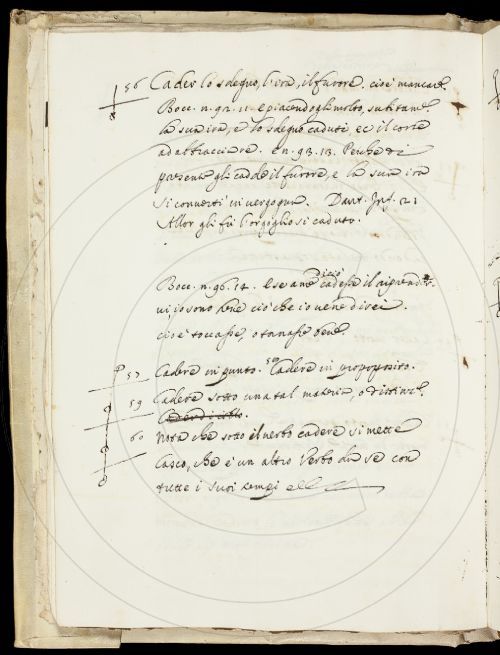 56 Cader lo sdegno, l'ira, il furore. cioè mancare.
Bocc. n. 92. 11. e piacendogli molto, subitame.
la sua ira, e lo sdegno caduti, ec il corse
ad abbracciare. e n. 93. 13.
presente gli cadde il furore, e la sua ira
si convertì in vergogna. Dant. Inf. 21
Allor gli fù l'orgoglio sì caduto.
Bocc. n. 96. 14. e se a me di ciò cadesse il riprender
vi, io sono bene ciò che io ve ne direi.
cioè toccasse, o stasse bene.
57 Cadere in punto. 58 Cadere in proposito.
59 Cadere sotto una tal materia, o
60 Nota che sotto il verbo cadere si mette
Casco, che è un altro Verbo da sè con
tutte i suoi tempi